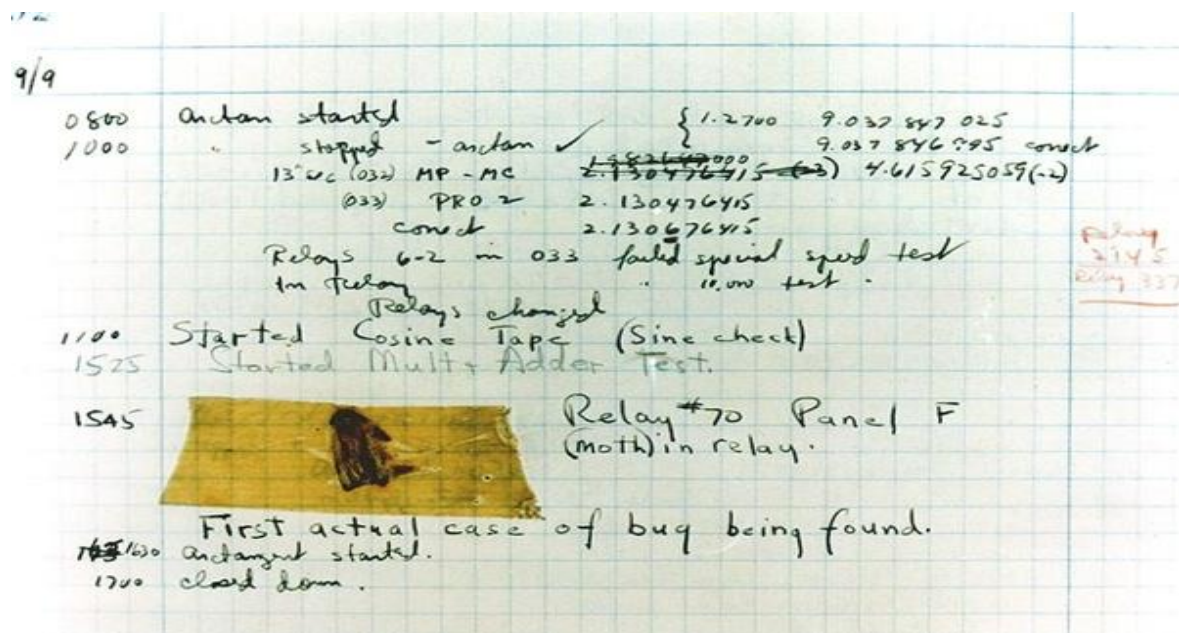 92
9/9
0800 arctan started { 1.2700 9.037 847 025
1000 " stopped - arctan ✓ 9.037 846 995 correct
13"sec (032) MP - MC 2.130476415 (-3) 4.615925059(-2)
(033) PRO 2 2.130476415
correct 2.130676415
Relays 6-2 in 033 failed special speed test
In relay " 10,000 test .
Relays changed
Relay
2145
Relay 337
1100 Started Cosine Tape (Sine check)
1525 Started Mult+ Adder Test.
1545 Relay #70 Panel F
(moth) in relay.
First actual case of bug being found.
1630 arctangent started.
1700 closed down.